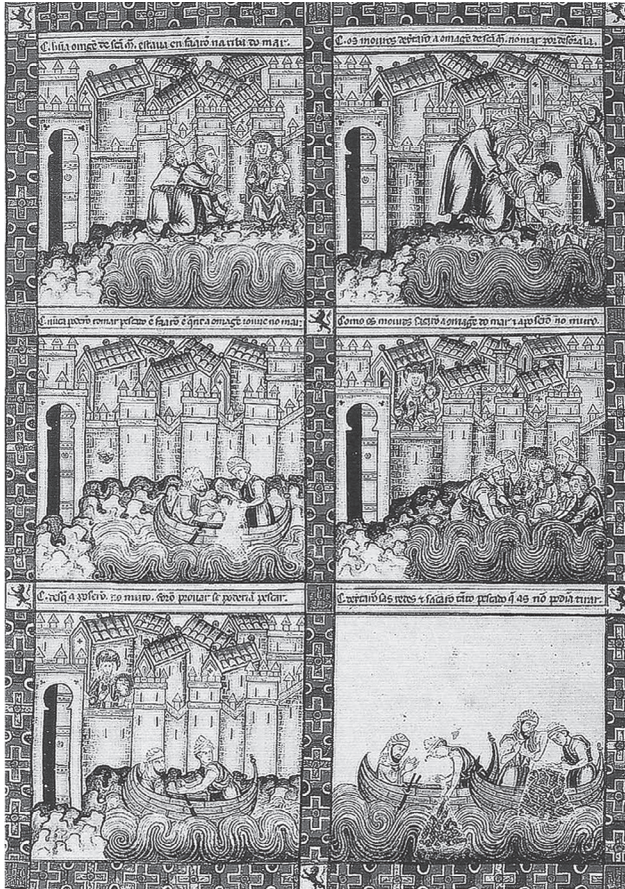 C. hũa omagẽ de scã m̃. estava en faarõ na riba do mar.
C. os mouros deytarõ a omagẽ de scã m̃. no mar por desõrrala.
C. nũca poderõ tomar pescado ẽ faarõ ẽ q̃nt a omagẽ iouve no mar.
Como os mouros sacarõ a omagẽ do mar ⁊ a poserõ no muro.
C. desq̃ a poserõ no muro. forõ provar se poderiã pescar.
C. deytarõ sas redes ⁊ sacarõ tãto pescado q̃ as nõ podiã tirar.